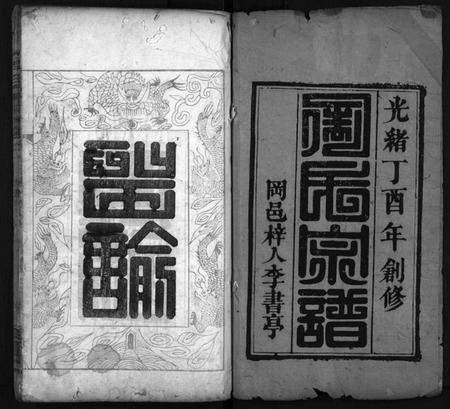 光緒丁酉年創修
周氏宗譜
岡邑梓人李書亭
聖諭